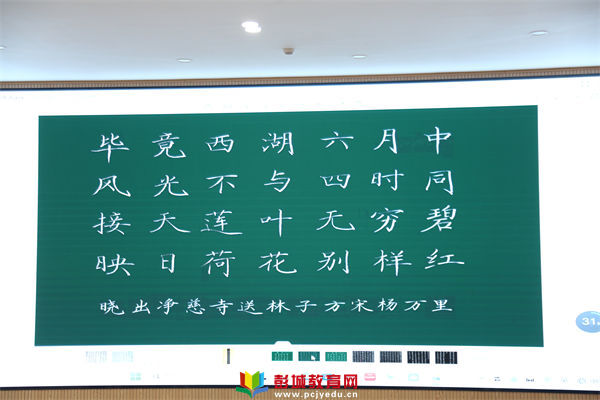 毕竟西湖六月中
风光不与四时同
接天莲叶无穷碧
映日荷花别样红
晓出净慈寺送林子方宋杨万里
31
彭城教育网
www.pcjyedu.cn